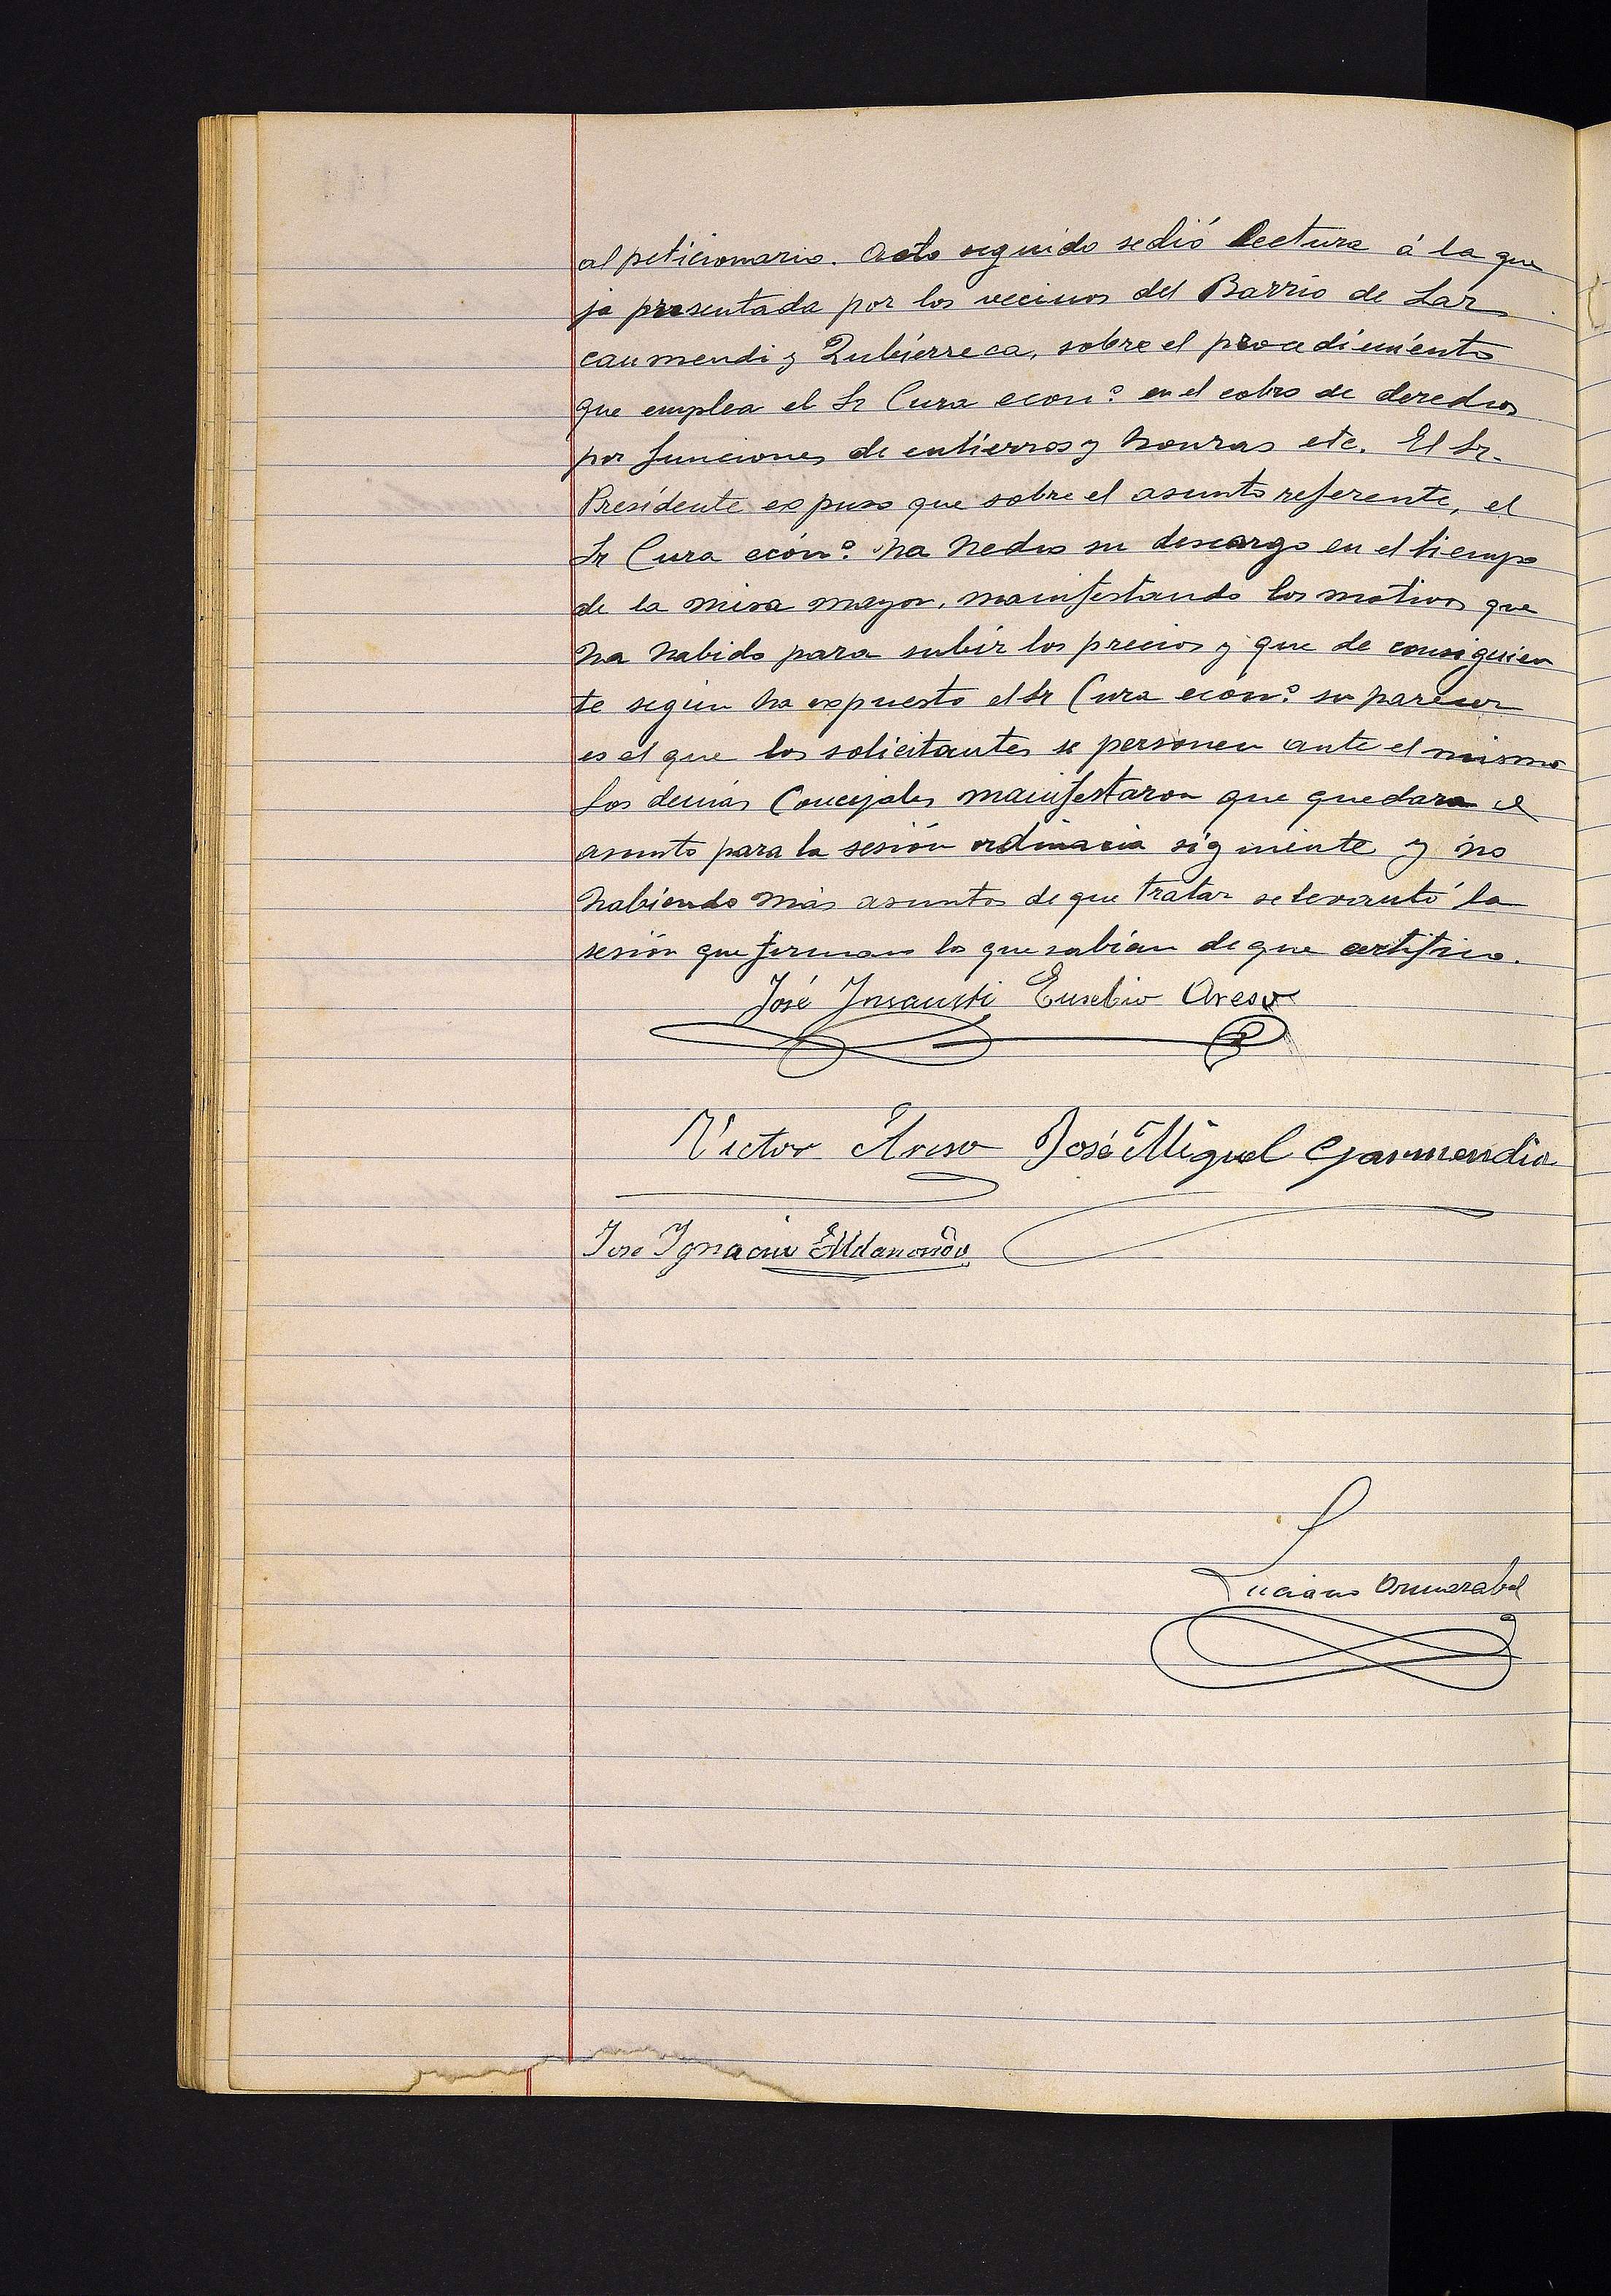 al peticionario. Acto seguido se dió lectura á la que
ja presentada por los vecinos del Barrio de Lar
caumendi y Zubierreca, sobre el procedimiento
que emplea el Sr Cura econº en el cobro de derechos
por funciones de entierros y honras etc. El Sr.
Presidente expuso que sobre el asunto referente, el
Sr Cura ecónº ha hecho su descargo en el tiempo
de la misa mayor, manifestando los motivos que
ha habido para subir los precios y que de consiguien
te según ha expuesto el Sr Cura ecónº su parecer
es el que los solicitantes se personen ante el mismo
Los demás Concejales manifestaron que quedara el
asunto para la sesión ordinaria siguiente y no
habiendo más asuntos de que tratar se levantó la
sesión que firman los que sabían de que certifico.
José Insausti Eusebio Areso
Victor Areso José Miguel Garmendia
Jose Ignacio
Luciano